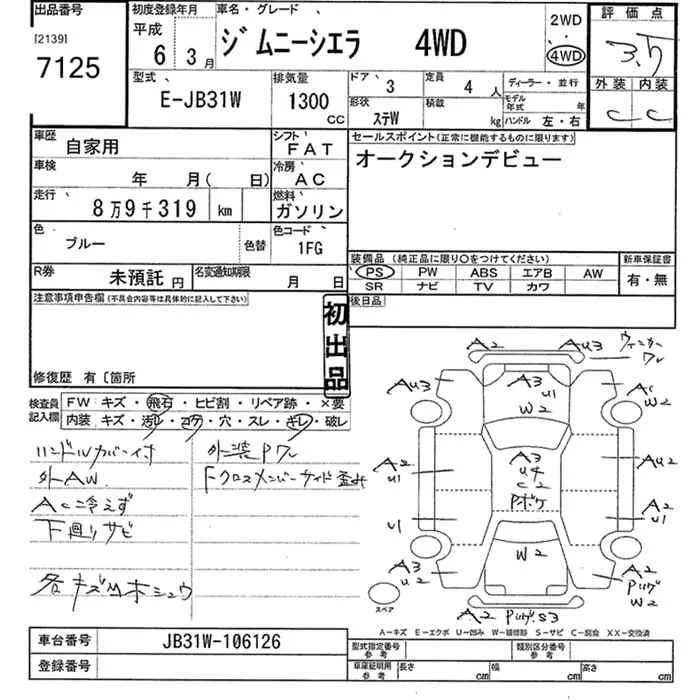 出品番号 初度登録年月 車名・グレード 2WD ・ 4WD 評価点
[2139] 7125 平成 6 3月 ジムニーシエラ 4WD 3.5
型式 E-JB31W 排気量 1300 CC ドア 3 定員 4 人 ディーラー・並行 外装 内装
形状 ステW 積載 kg モデル年式 年 ハンドル 左・右 C C
車歴 自家用 シフト FAT セールスポイント(正常に機能するものに限ります)
車検 年 月( 日) 冷房 AC オークションデビュー
走行 8万9千319 km 燃料 ガソリン
色 ブルー 色替 色コード 1FG
装備品(純正品に限り○をつけてください) 新車保証書
PS PW ABS エアB AW 有・無
SR ナビ TV カワ
R券 未預託 円 名変通知期限 月 日
後日品
注意事項申告欄(不具合内容等は具体的に記入して下さい)
初出品
修復歴 有〔箇所
検査員記入欄 FW:キズ・飛石・ヒビ割・リペア跡・×要
内装:キズ・汚レ・コゲ・穴・スレ・キレ・破レ
ハンドルカバー付 外装Pワレ
外AW Fクロスメンバーサイド歪み
AC冷えず
下廻りサビ
各キズ凹木シュウ
A2 AU3 ウィンカーワレ
AU3 A3 U1 W2 A W2
A2 U1 A3 U4 C2 Pボケ AU2
U1 A2 U1
A3 U2 W2 A2 Pハゲ W2
スペア A2 Pハゲ S3
A－キズ E－エクボ U－凹み W－補修跡 S－サビ C－腐食 XX－交換済
車台番号 JB31W-106126
登録番号
型式指定番号 参考 類別区分番号 参考
車庫証明用 参考 長さ cm 幅 cm 高さ cm